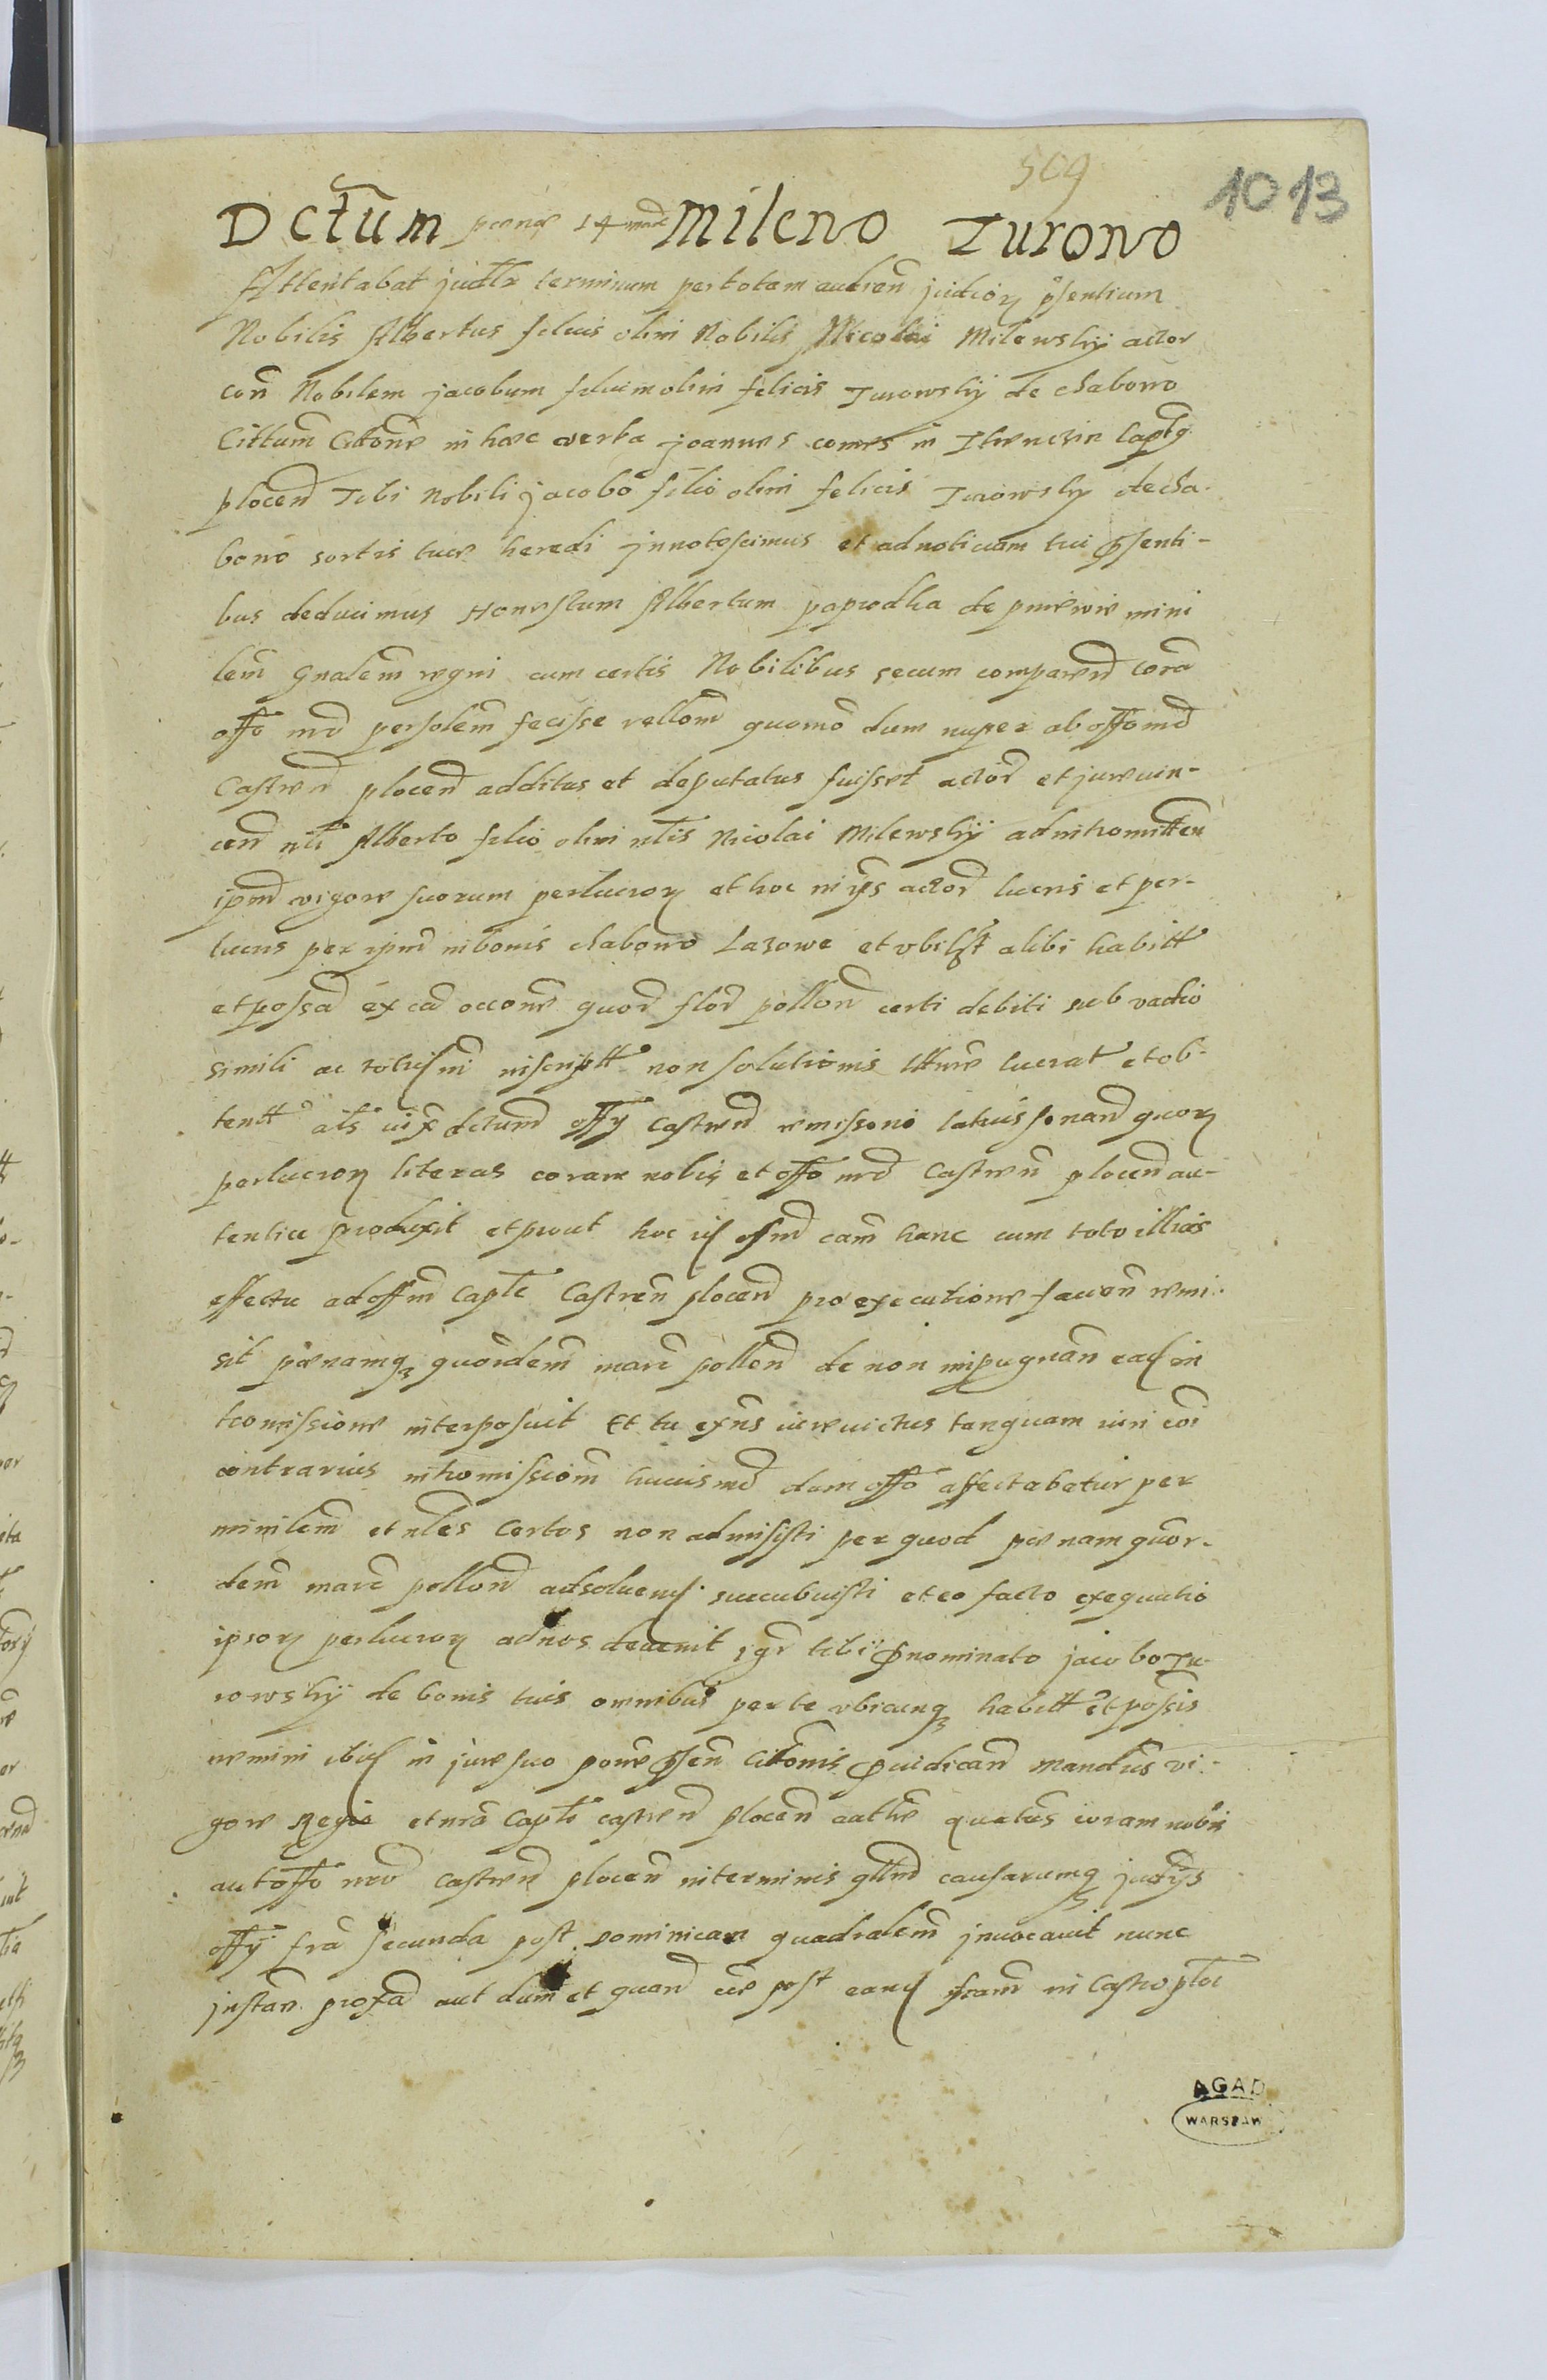 509
1013
Dctūm pene 14 marc Mileno Turono
Attentabat judtr terminum per totam audien judiciorz psentium
Nobilis Albertus filius olim Nobilis Nicolai Milewskij actor
con Nobilem jacobum filium olim felicis Turowskij de chabowo
Cittum Citone in haec verba joannes comes in Thenczin Captq
plocen Tibi Nobili jacobo filio olim felicis Turowsky de cha-
bono sortis tuae heredi jnnotescimus et ad noticiam tui psenti-
bus deducimus Honestum Albertum paprodka de pniewie mini
lem gnalem regni cum certis Nobilibus secum comparen cora
offo nro per solem fecisse rellom quomo dum nuper ab offo nro
Castren plocen additus et deputatus fuisset actor et jurevin-
cen nli Alberto filio olim nlis Nicolai Milewskij ad intromitten
ipm vigore suorum perlucrorz et hoc in ijs actor lucris et per-
lucris per ipm in bonis chabowo Lazowe et vbilzt alibi habitt
et possa ex ea occone quor flor pollon certi debiti sub vadio
simili ac totiusm inscriptt non solutionis ltme lucrat et ob-
tentt als iux dctum offy Castren remissoni latius sonan quorz
perlucrorz literas coram nobis et offo nro Castren plocen au-
tentice produxit et prout hoc offm cam hanc cum toto illius
effectu ad offm Captc Castren plocen pro executione facien remi-
sit paenamqz quordem marc pollon de non impugnan ead in
tromissione interposuit Et tu exns jurevictus tanquam iuri coi
contrarius intromissiom huiusmo dum offo affectabatur per
minilem et nles Certos non admisisti per quod paenam quor-
dem marc pollon adsoluen succubuisti et eo facto exequutio
ipsorz perlucrorz ad nos devenit igr tibi pnominato jacobo Tu-
rowskij de bonis tuis omnibus per te vbicunqz habitt et possis
nemini ibid in jure suo pone psen Citonis puidican Mandus vi-
gore Regia et nra Captc castren plocen auttte quatus coram nobis
aut offo nro castren plocen in terminis qllm causarumqz judijs
offy fra secunda post dominicam quadralem jnvocavit nunc
jnstan proxa aut dum et quan ee post eand fram in Castro ploc
AGAD
WARSZAW